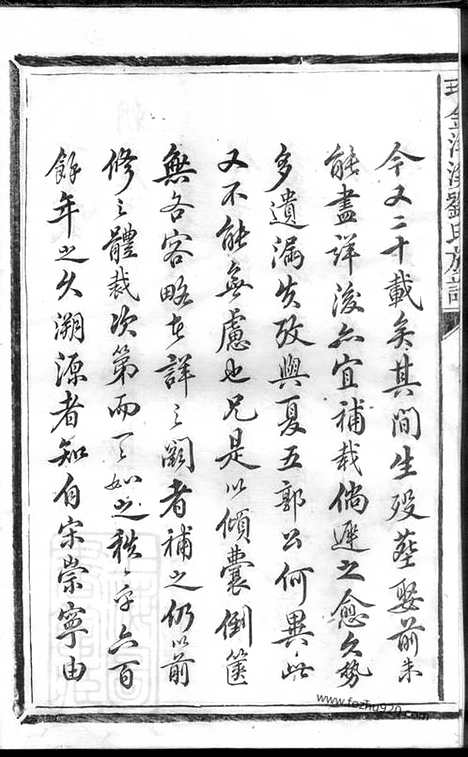 劉氏族譜
今又二十載矣其間生歿葬娶前未
能盡詳後亦宜補載倘遲之愈久勢
多遺漏失攷與夏五郭公何異此
又不能無慮也兄是以傾囊倒篋
無吝容略者詳之闕者補之仍以前
修之體裁次第而一一如之秩〻乎六百
餘年之久溯源者知自宋崇寧由
www.fozhu920.com